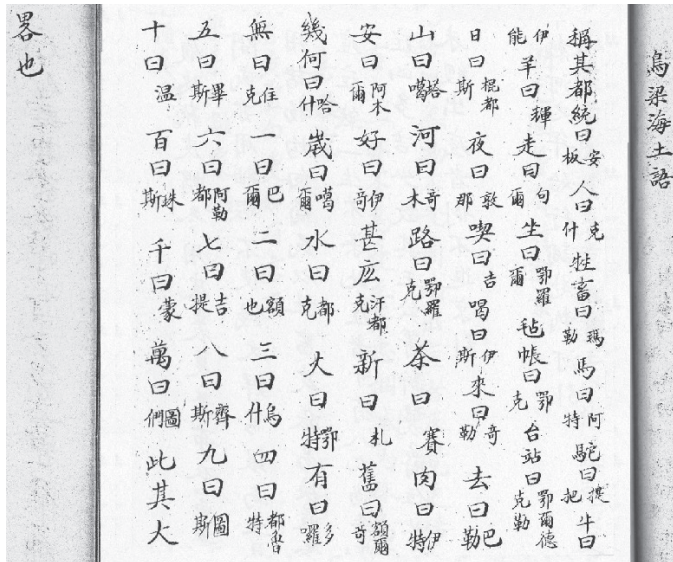 烏梁海土語
稱其都統曰安板人曰克什牲畜曰瑪勒馬曰阿特駝曰提把牛曰
伊能羊曰輝走曰句爾坐曰鄂羅爾毡帳曰鄂克台站曰鄂爾德克勒
日曰棍都斯夜曰敦那喫曰吉喝曰伊斯來曰哥勒去曰巴勒
山曰塔噶河曰哥木路曰鄂羅克茶曰賽肉曰伊特
安曰阿木爾好曰伊哥甚庅曰汗都克新曰札舊曰額爾哥
幾何曰哈什歲曰噶爾水曰都克大曰鄂特有曰多囉
無曰住克一曰巴爾二曰額也三曰烏什四曰都魯特
五曰畢斯六曰阿勒都七曰吉提八曰齊斯九曰圖斯
十曰温百曰珠斯千曰蒙萬曰圖們此其大
畧也